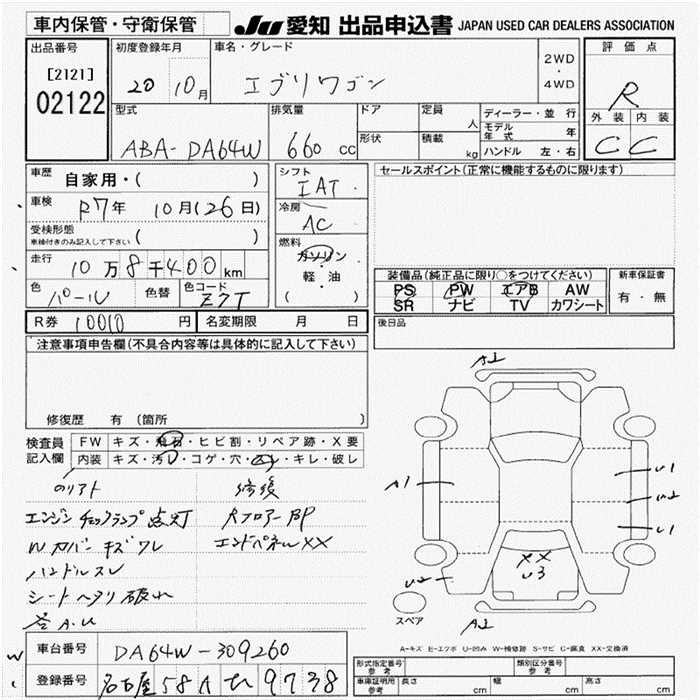 車内保管・守衛保管
JU 愛知 出品申込書 JAPAN USED CAR DEALERS ASSOCIATION
出品番号
[2121]
02122
初度登録年月
20 10月
車名・グレード
エブリワゴン
2WD
・
4WD
評価点
R
外装 内装
C C
型式
ABA-DA64W
排気量
660 cc
ドア
形状
定員
人
積載
kg
ディーラー・並行
モデル年式 年
ハンドル 左・右
車歴
自家用・( )
車検
R7年 10月(26日)
受検形態
車検付きのみ記入して下さい ( )
走行
10万8千400km
色
パール
色替
色コード
Z7T
シフト
IAT
冷房
AC
燃料
ガソリン
軽・油
( )
セールスポイント(正常に機能するものに限ります)
装備品(純正品に限り○をつけてください)
PS PW エアB AW
SR ナビ TV カワシート
新車保証書
有・無
R券 10010円
名変期限 月 日
後日品
注意事項申告欄(不具合内容等は具体的に記入して下さい)
修復歴 有 (箇所 )
検査員
記入欄
FW キズ・飛石・ヒビ割・リペア跡・X要
内装 キズ・汚レ・コゲ・穴・スレ・キレ・破レ
修復
エンジンチェックランプ点灯
RフロアーBP
Wカバーキズワレ
エンドパネルXX
ハンドルスレ
シートヘタリ破れ
各A.U
A2
A1
U1
U2
U1
XX
U3
U2
A2
スペア
A-キズ E-エクボ U-凹み W-補修跡 S-サビ C-腐食 XX-交換済
車台番号
DA64W-309260
登録番号
名古屋 58 9738
形式指定番号
参考
類別区分番号
参考
車庫証明用
参考
長さ cm
幅 cm
高さ cm